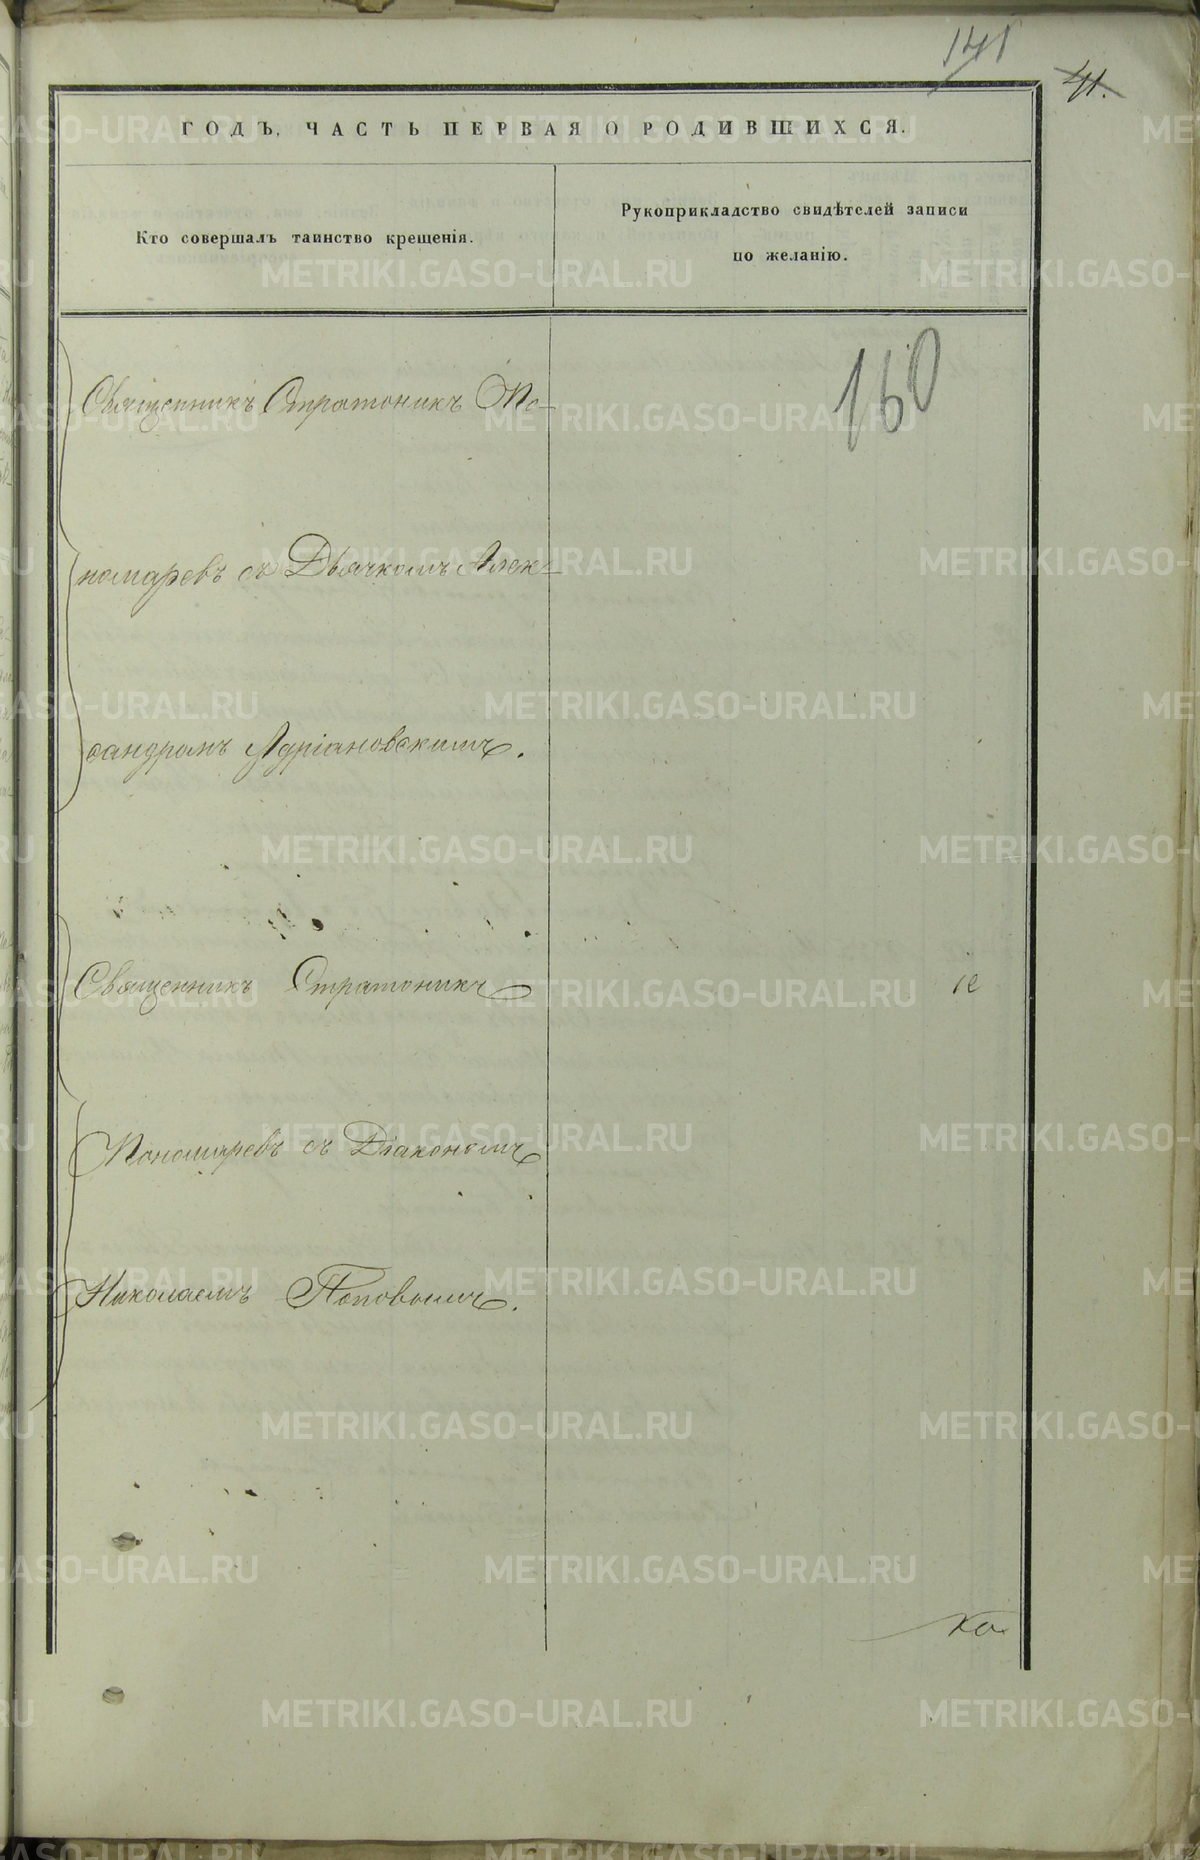 141
41.
ГОДЪ, ЧАСТЬ ПЕРВАЯ О РОДИВШИХСЯ.
Кто совершалъ таинство крещенія.
Рукоприкладство свидѣтелей записи
по желанію.
160
Священникъ Стратоникъ По-
номаревъ съ Дьячкомъ Алек-
сандромъ Адріановскимъ.
Священникъ Стратоникъ
іе
Пономаревъ съ Діакономъ
Николаемъ Поповымъ.
METRIKI.GASO-URAL.RU